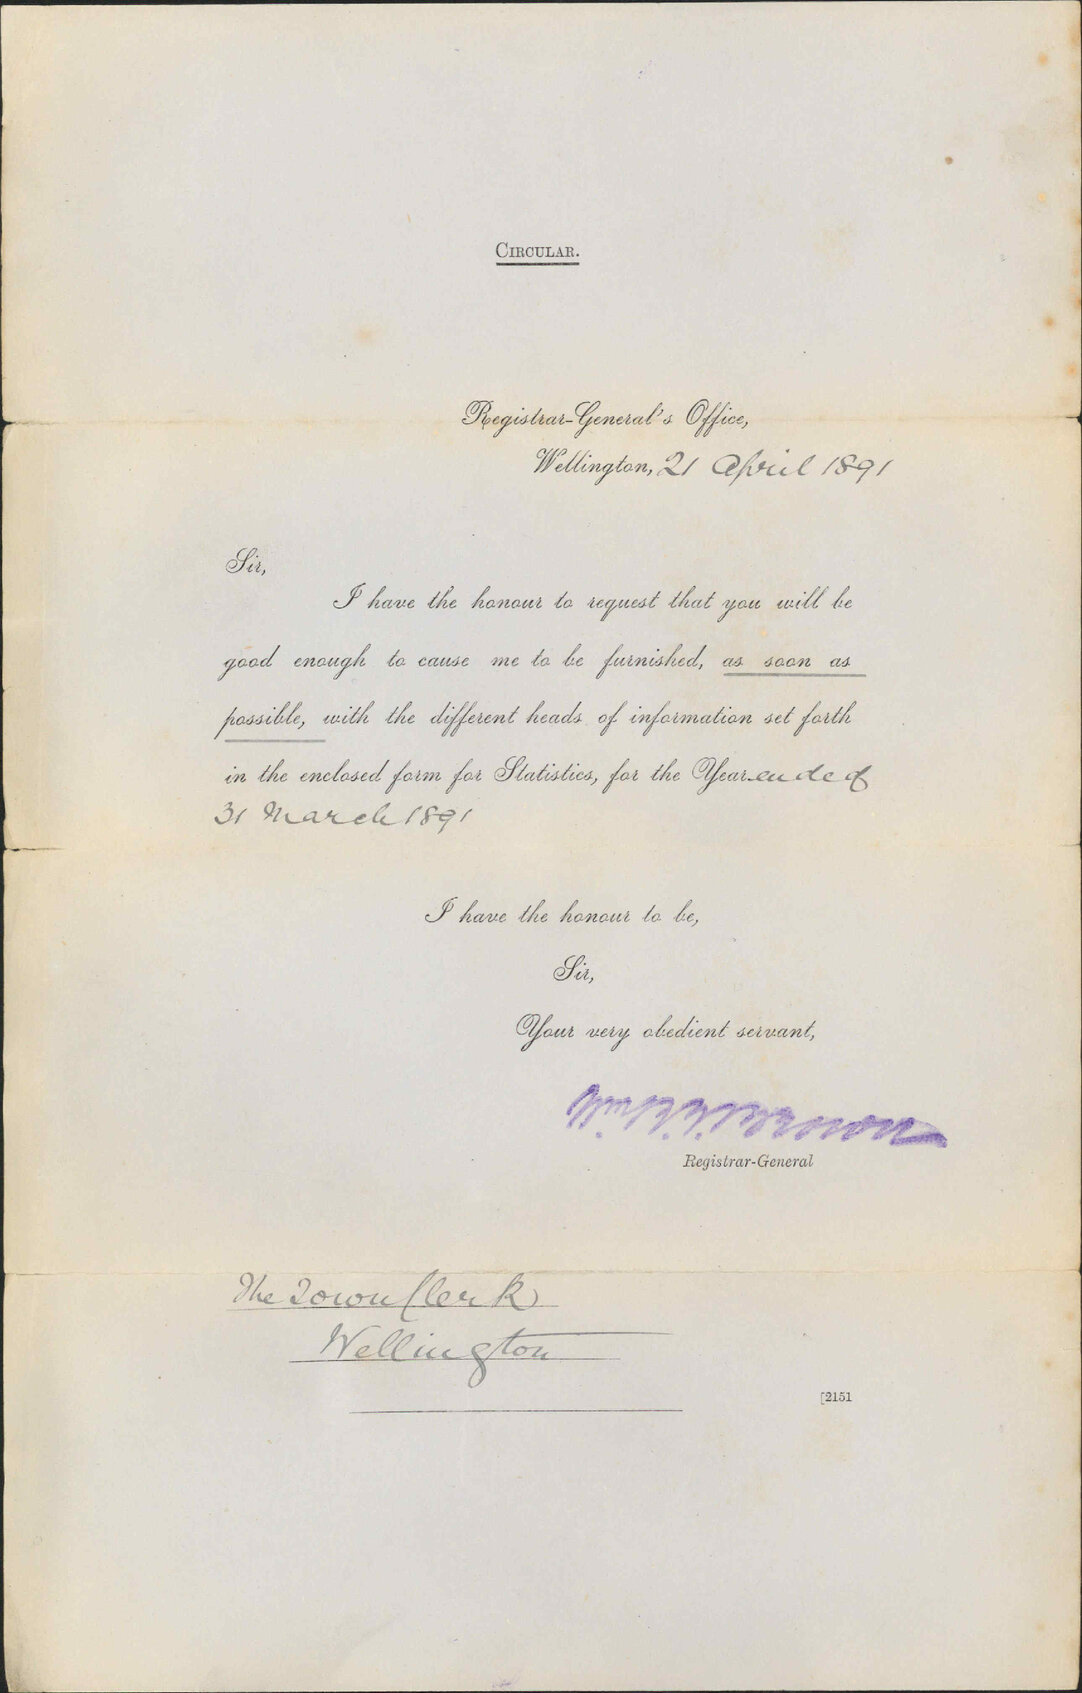 CIRCULAR.
Registrar-General's Office,
Wellington, 21 April 1891
Sir,
I have the honour to request that you will be
good enough to cause me to be furnished, as soon as
possible, with the different heads of information set forth
in the enclosed form for Statistics, for the Year ended
31 March 1891
I have the honour to be,
Sir,
Your very obedient servant,
Wm. R. E. Brown
Registrar-General
The Town Clerk
Wellington
[2151